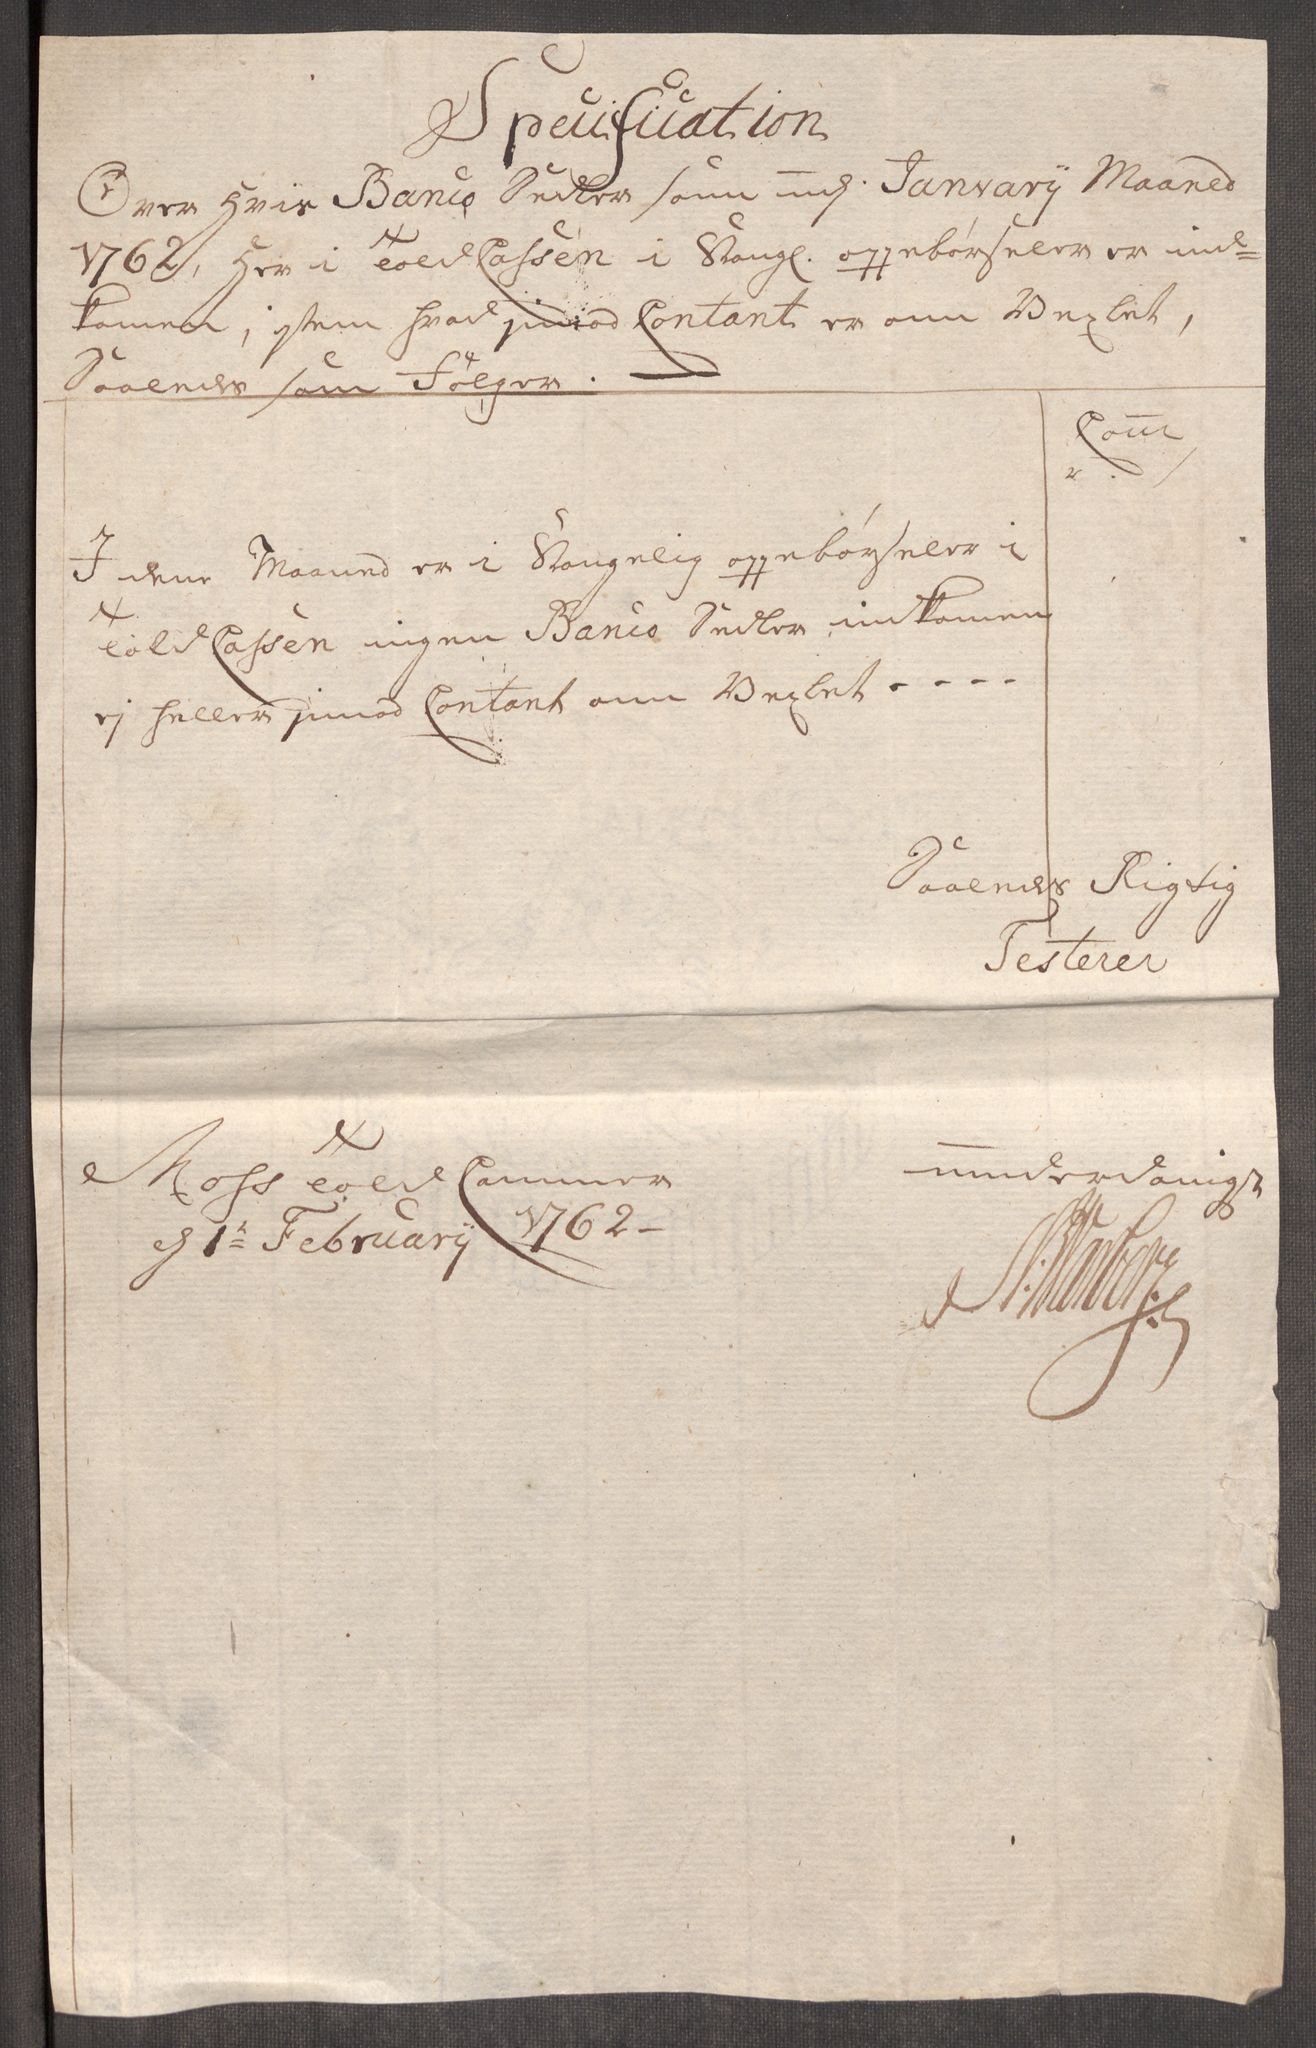 Specification
Over Hvis Banco Sedler som udj Janvarÿ Maaned
1762, her i Told Cassen i Kongl. oppebørseler er ind=
komen, jtem hvad jmod Contant er om Vexlet,
Saaledes som Følger.
Cour
r . s
I dene Maaned er i Kongelig oppebørseler i
Told Cassen ingen Banco Sedler indkomen
ej heller jmod Contant om Vexlet - - - -
Saaledes Rigtig
Testerer
Moss Told Cammer
d 1te Februarÿ 1762 -
underdanigst